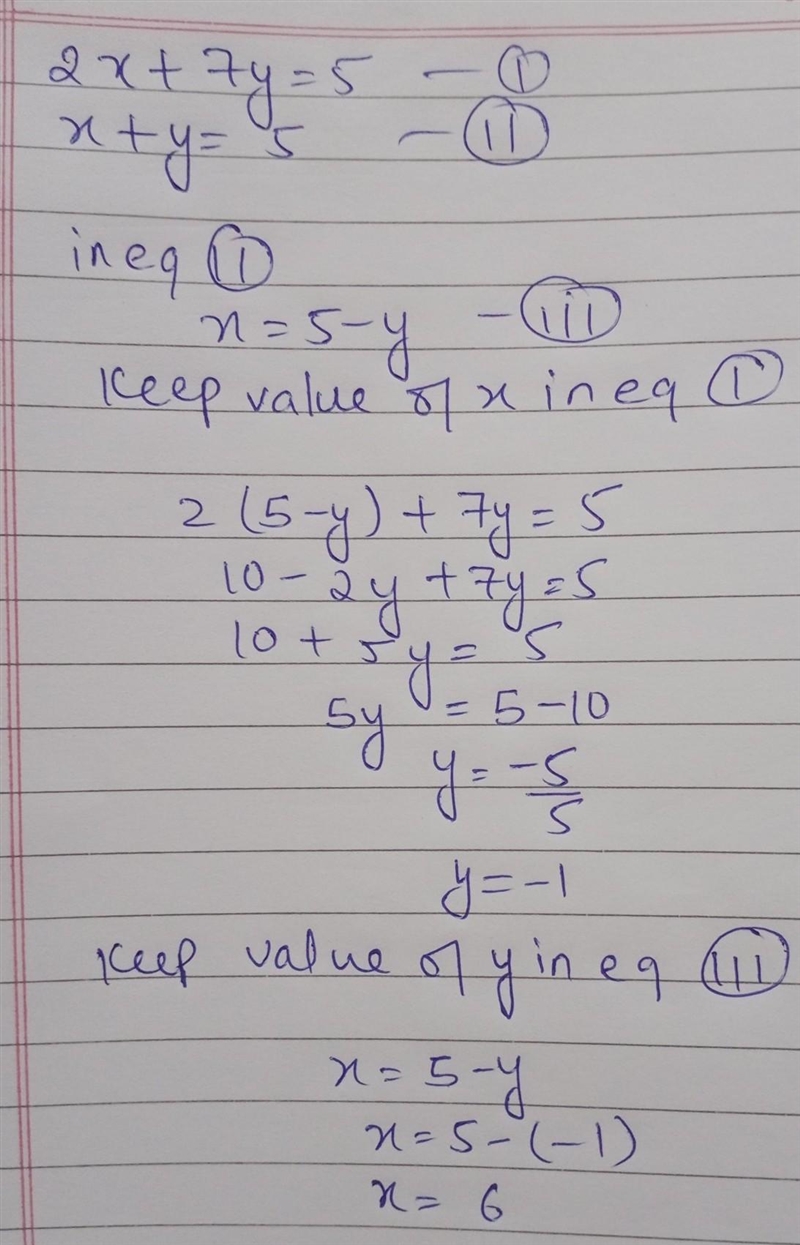 2x + 7y = 5 — (I)
x + y = 5 — (II)
in eq (II)
x = 5 - y — (III)
Keep value of x in eq (I)
2 (5 - y) + 7y = 5
10 - 2y + 7y = 5
10 + 5y = 5
5y = 5 - 10
y = -5/5
y = -1
Keep value of y in eq (III)
x = 5 - y
x = 5 - (-1)
x = 6